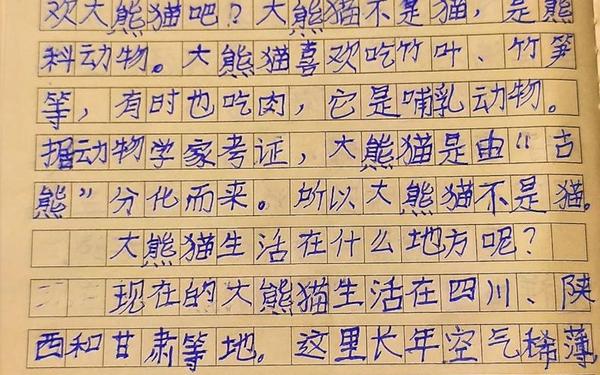 欢大熊猫吧？大熊猫不是猫，是熊
科动物。大熊猫喜欢吃竹叶、竹笋
等，有时也吃肉，它是哺乳动物。
据动物学家考证，大熊猫是由“古
熊”分化而来。所以大熊猫不是猫。
大熊猫生活在什么地方呢？
现在的大熊猫生活在四川、陕
西和甘肃等地。这里长年空气稀薄，